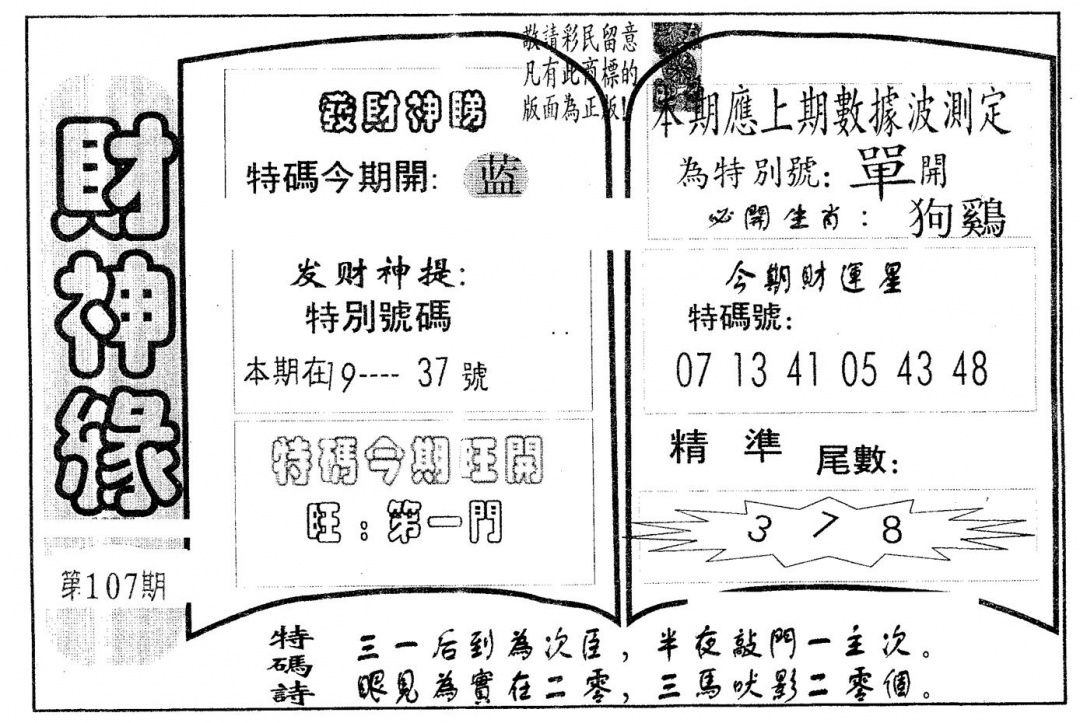 財神緣
第107期
敬請彩民留意
凡有此商標的
版面為正版!
發財神賜
特碼今期開: 蓝
发财神提:
特別號碼
本期在19---- 37 號
特碼今期旺開
旺:第一門
本期應上期數據波測定
為特別號: 單開
必開生肖: 狗鷄
今期財運星
特碼號:
07 13 41 05 43 48
精準 尾數:
3 7 8
特碼詩
三一后到為次臣，半夜敲門一主次。
眼見為實在二零，三馬吠影二零個。